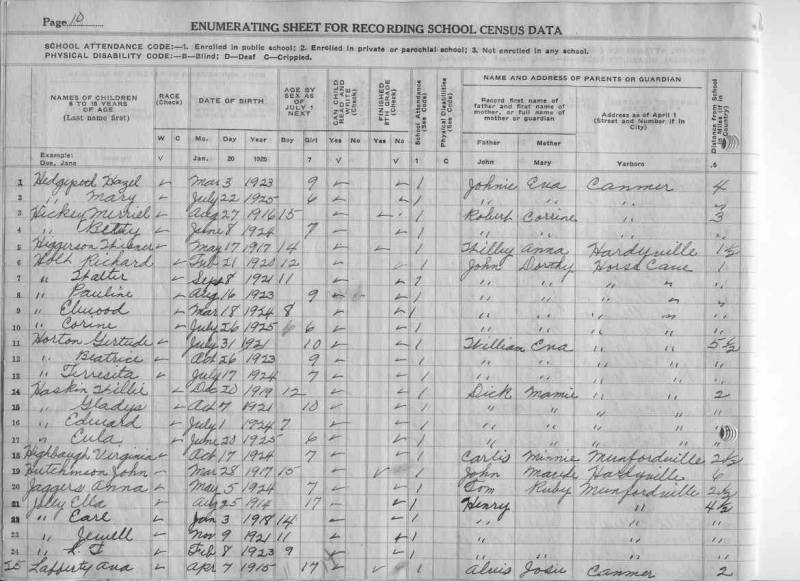 Page 10
ENUMERATING SHEET FOR RECORDING SCHOOL CENSUS DATA
SCHOOL ATTENDANCE CODE:—1. Enrolled in public school; 2. Enrolled in private or parochial school; 3. Not enrolled in any school.
PHYSICAL DISABILITIES CODE:—B—Blind; D—Deaf C—Crippled.
NAMES OF CHILDREN 6 TO 18 YEARS OF AGE (Last name first) RACE (Check) DATE OF BIRTH AGE BY SEX AS OF JULY 1 NEXT CAN CHILD READ AND WRITE (Check) FINISHED 8TH GRADE (Check) School Attendance (See Code) Physical Disabilities (See Code) NAME AND ADDRESS OF PARENTS OR GUARDIAN Distance from School in Miles (or in Country)
Record first name of father and first name of mother, or full name of mother or guardian Address as of April 1 (Street and Number if in City)
W C Mo. Day Year Boy Girl Yes No Yes No Father Mother
Example: Doe, Jane V Jan. 20 1925 7 V V 1 C John Mary Yarboro .5
1 Hedgepeth Hazel ✓ Mar 3 1923 9 ✓ ✓ 1 Johnie Eva Canmer 4
2 " Mary ✓ July 22 1925 6 ✓ ✓ 1 " " " "
3 Hickey Merriel ✓ Aug 27 1916 15 ✓ 1 Robert Corrine " 3
4 " Betty ✓ June 8 1924 7 ✓ ✓ 1 " " "
5 Higgerson ✓ May 17 1917 14 ✓ ✓ 1 Anna Hardyville 1½
6 Holt Richard ✓ Feb 21 1920 12 ✓ ✓ 1 John Dorothy Horse Cave 1
7 " ✓ Sept 8 1921 11 ✓ ✓ " " " " "
8 " Pauline ✓ Aug 16 1923 9 ✓ ✓ 1 " " " " "
9 " Elwood ✓ Mar 18 1924 8 ✓ ✓ 1 " " " " "
10 " Corine ✓ July 26 1925 6 ✓ ✓ 1 " " " "
11 Horton Gertude ✓ July 31 1921 10 ✓ ✓ 1 William Eva " " 5½
12 " Beatrice ✓ Oct 26 1923 9 ✓ ✓ 1 " " " "
13 " ✓ July 17 1924 7 ✓ ✓ 1 " " " "
14 Haskin Willie ✓ Dec 20 1919 12 ✓ ✓ 1 Dick Mamie " " 2
15 " Gladys ✓ Oct 7 1921 10 ✓ ✓ 1 " " " "
16 " Edward ✓ July 1 1924 7 ✓ ✓ 1 " " " "
17 " Eula ✓ June 20 1925 6 ✓ ✓ 1 " " " "
18 Highbaugh Virginia ✓ Oct 17 1924 7 ✓ ✓ 1 Minnie Munfordville 2½
19 Hutchinson John ✓ Mar 28 1917 15 ✓ ✓ 1 John Hardyville 6
20 Jaggers Anna ✓ May 5 1924 7 ✓ ✓ 1 Tom Ruby Munfordville 2½
21 Ella ✓ Aug 25 1914 17 ✓ ✓ 1 Henry " 4½
22 " Earl ✓ Jan 3 1918 14 ✓ ✓ 1 " "
23 " Jewell ✓ Nov 9 1921 11 ✓ ✓ 1 " "
24 " L. T ✓ Feb 8 1923 9 ✓ ✓ 1 " " "
25 Lafferty Ava ✓ Apr 7 1915 17 ✓ ✓ 1 Alvis Josie Canmer 2